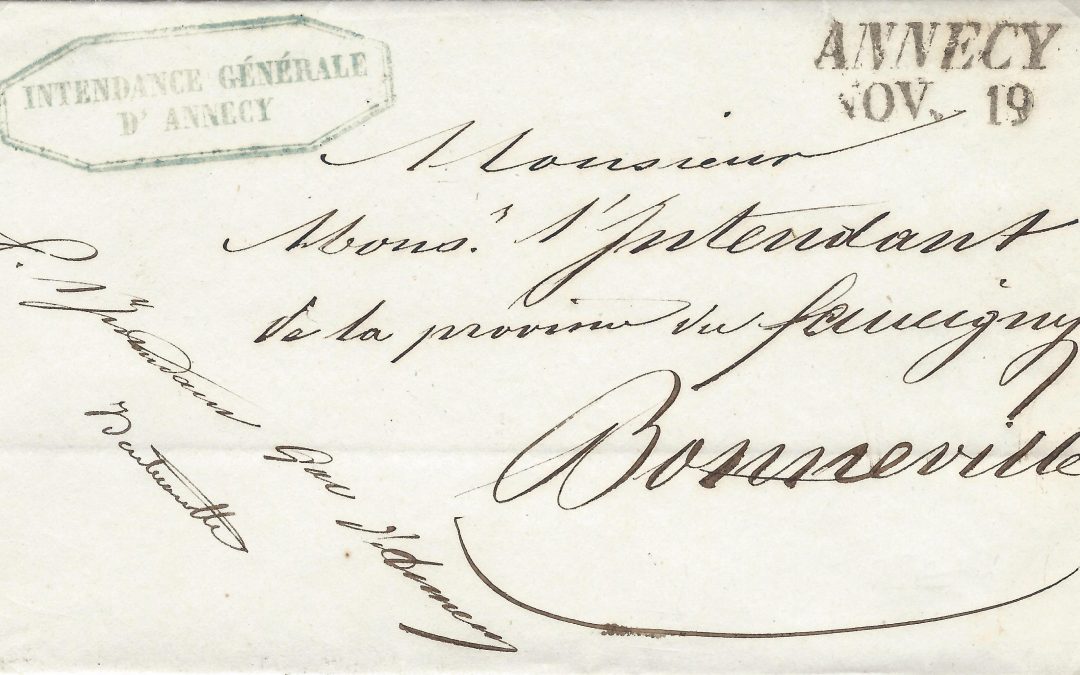 INTENDANCE GÉNÉRALE
D' ANNECY
ANNECY
NOV. 19
Monsieur
Mons.r l'Intendant
de la province du Faucigny
Bonneville
L'Intendant Gal d'Annecy